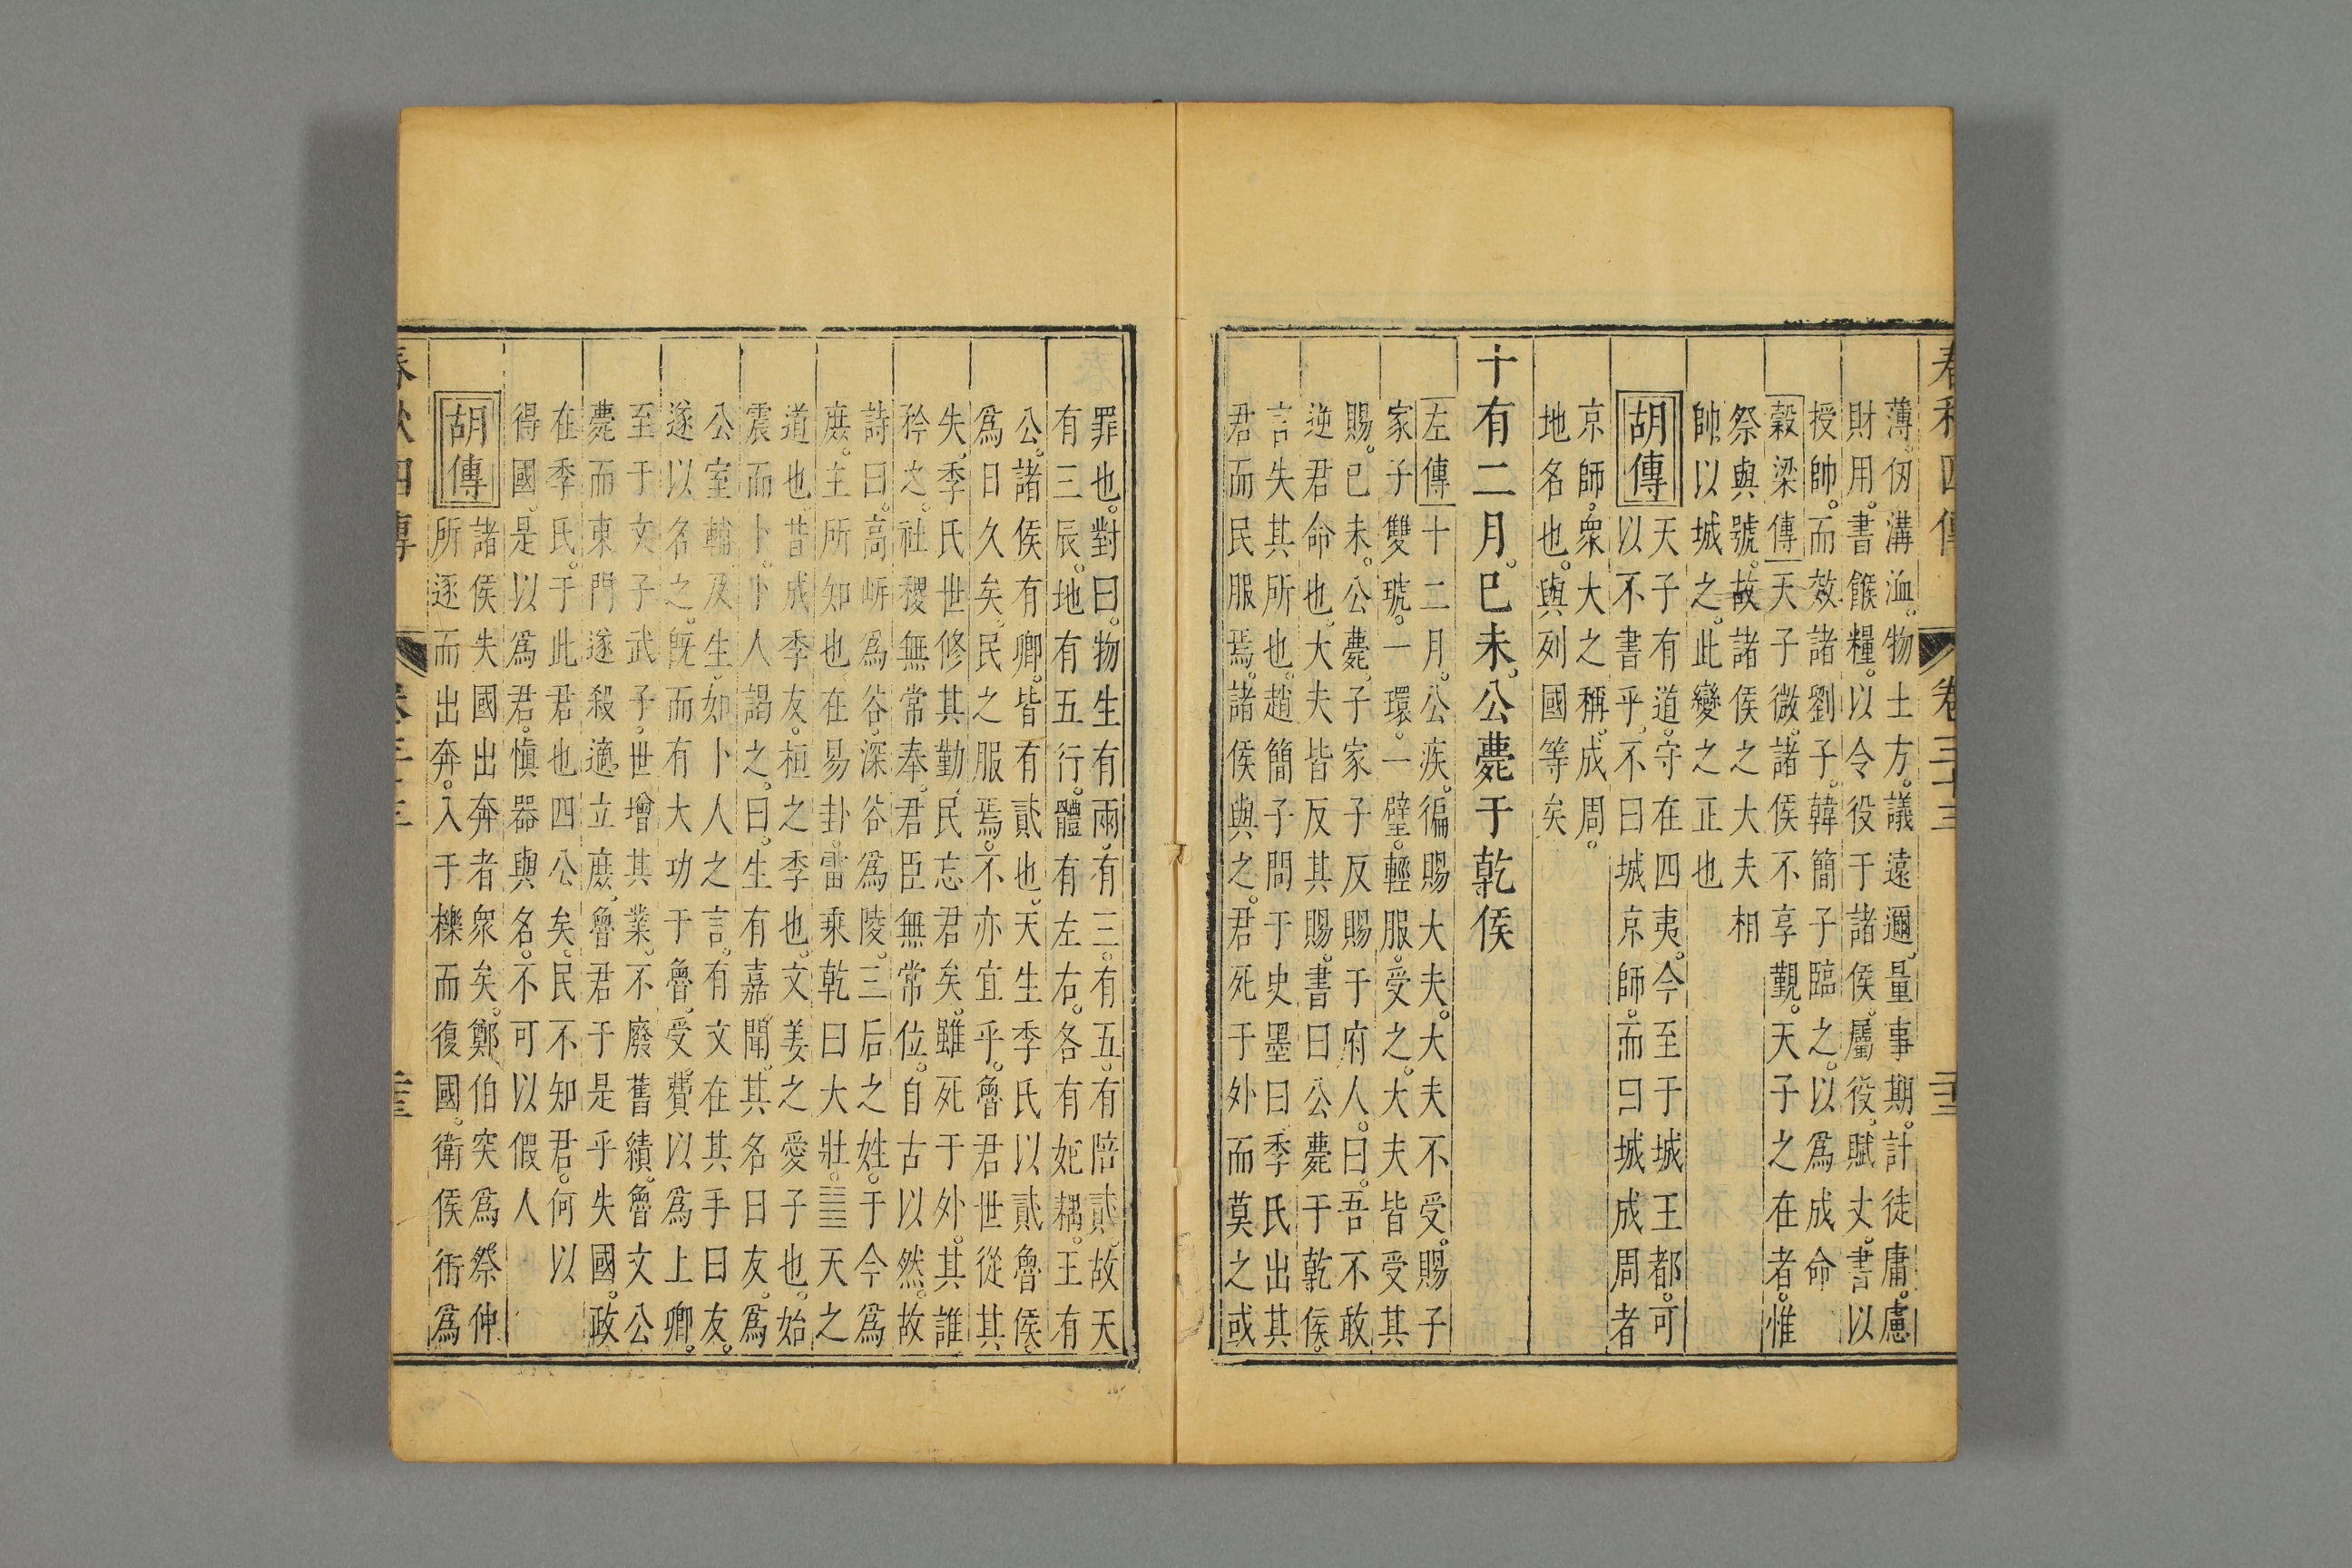 春秋四傳 卷三十三
薄仞溝洫。物土方。議遠邇。量事期。計徒庸。慮
財用。書餱糧。以令役于諸侯。屬役。賦丈。書以
授帥。而效諸劉子。韓簡子臨之。以爲成命
穀梁傳天子微。諸侯不享覲。天子之在者。惟
祭與號。故諸侯之大夫相
帥以城之。此變之正也
胡傳天子有道。守在四夷。今至于城王都。可
以不書乎。不曰城京師。而曰城成周者
京師。衆大之稱。成周。
地名也。與列國等矣
十有二月。巳未。公薨于乾侯
左傳十二月。公疾。徧賜大夫。大夫不受。賜子
家子雙琥。一環。一璧。輕服。受之。大夫皆受其
賜。巳未。公薨。子家子反賜于府人。曰。吾不敢
逆君命也。大夫皆反其賜。書曰公薨于乾侯。
言失其所也。趙簡子問于史墨曰季氏出其
君而民服焉。諸侯與之。君死于外而莫之或
罪也。對曰。物生有兩。有三。有五。有陪貳。故天
有三辰。地有五行。體有左右。各有妃耦。王有
公。諸侯有卿。皆有貳也。天生季氏以貳魯侯。
爲日久矣。民之服焉。不亦宜乎。魯君世從其
失。季氏世修其勤。民忘君矣。雖死于外。其誰
矜之。社稷無常奉。君臣無常位。自古以然。故
詩曰。高岸爲谷。深谷爲陵。三后之姓。于今爲
庶。主所知也。在易卦。雷乘乾曰大壯。䷡天之
道也。昔成季友。桓之季也。文姜之愛子也。始
震而卜。卜人謁之。曰。生有嘉聞。其名曰友。爲
公室輔。及生。如卜人之言。有文在其手曰友。
遂以名之。旣而有大功于魯。受費以爲上卿。
至于文子武子。世增其業。不廢舊績。魯文公
薨。而東門遂殺適立庶。魯君于是乎失國。政
在季氏。于此君也四公矣。民不知君。何以
得國。是以爲君。愼器與名。不可以假人
胡傳諸侯失國出奔者衆矣。鄭伯突爲祭仲
所逐而出奔。入于櫟而復國。衛侯衎爲
春秋四傳